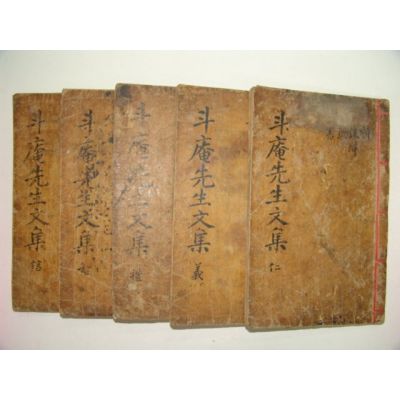 斗庵先生文集 仁
斗庵先生文集 義
斗庵先生文集 禮
斗庵先生文集 智
斗庵先生文集 信